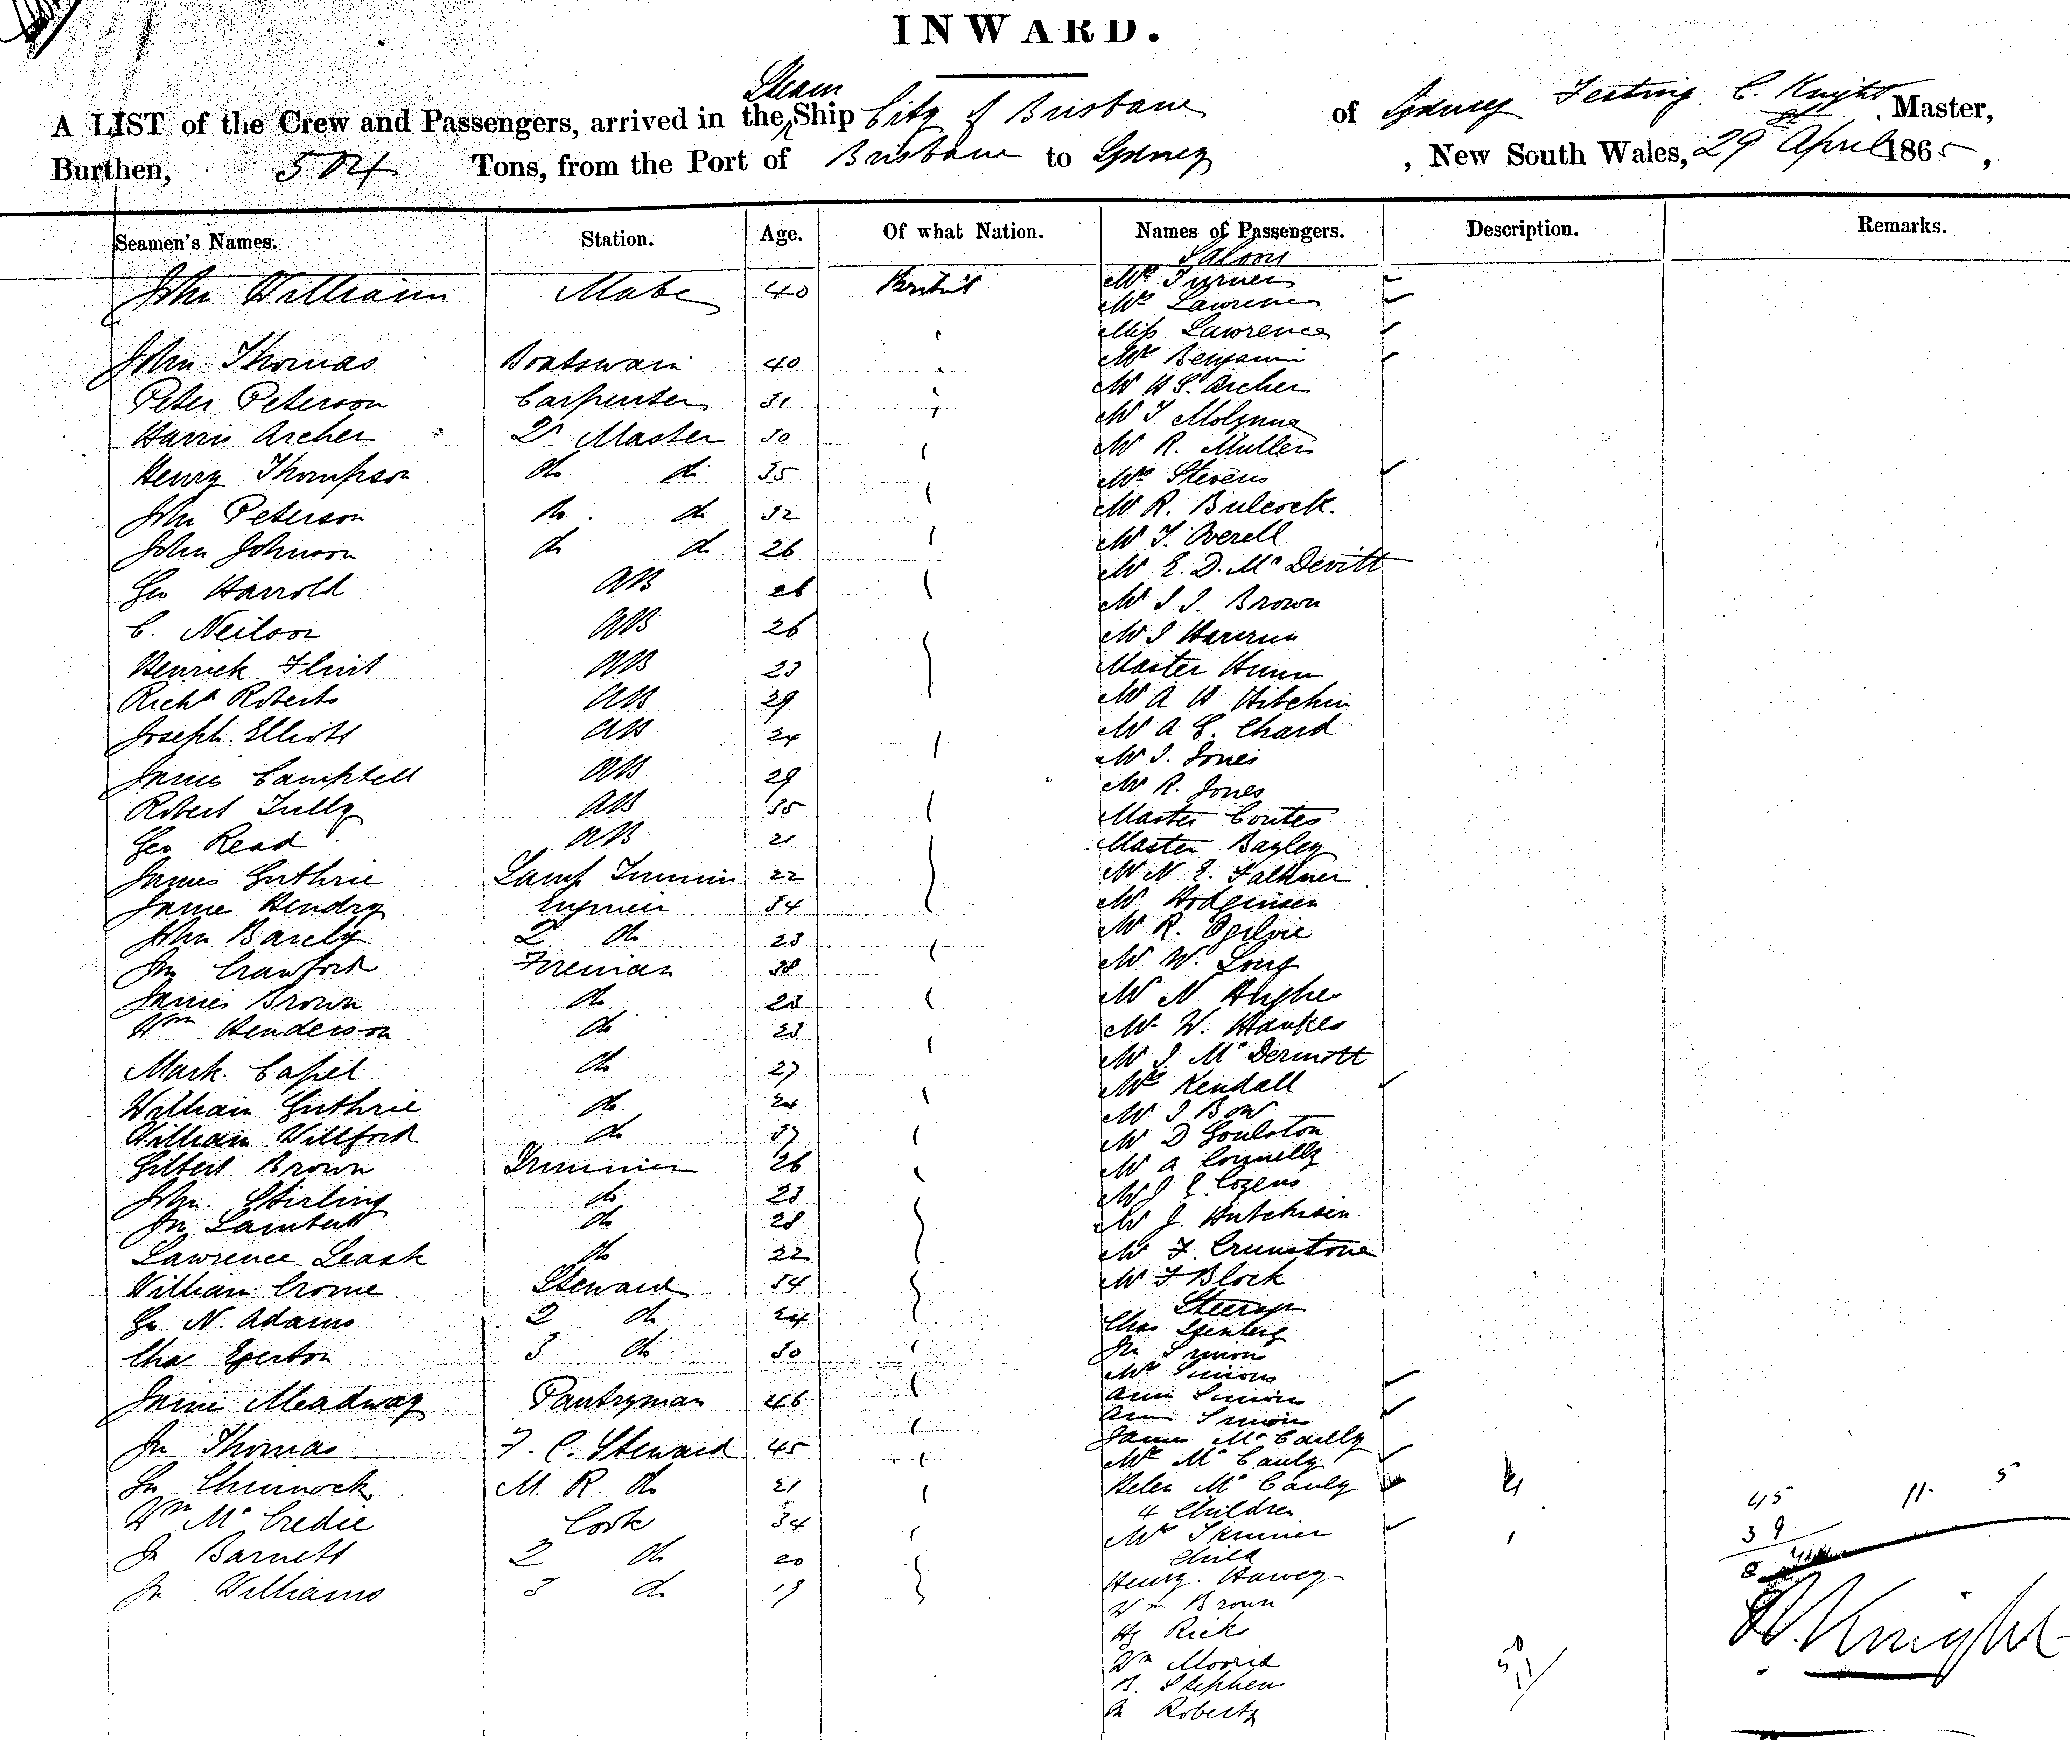 INWARD.
A LIST of the Crew and Passengers, arrived in the Steam Ship City of Brisbane of Sydney C. Knight, Master,
Burthen, 504 Tons, from the Port of Brisbane to Sydney, New South Wales, 29th April 1865,
Seamen's Names. Station. Age. Of what Nation. Names of Passengers. Description. Remarks.
Saloon
John William Mate 40 British Mrs Turner
Mrs Lawrence
Miss Lawrence
John Thomas Boatswain 40 Mrs Benjamin
Peter Peterson Carpenter 31 Mr Archer
Harris Archer Qr Master 30 Mr
Mr R. Muller
Henry Thompson do do 35 Mrs Stevens
John Peterson do do 32 Mr R. Bulcock.
John Johnson do do 26 Mr T. Overell
Mr E. D. Mc Devitt
Geo Harrold AB 26 Mr J J. Brown
C. Neilson AB 26 Mr J
Henrick Flint AB 23 Master
Richd Roberts AB 29 Mr A H Hitchin
Joseph Elliott AB 24 Mr A C. Chard
Mr J. Jones
James Campbell AB 29 Mr R. Jones
Robert Tully AB 35 Master Coutes
Geo Read AB 21 Master Bayley
James Guthrie Lamp Trimmer 22 Mr N. E. Falkner
James Hendry Engineer 34 Mr Hodginson
John Barcly 2 do 23 Mr R. Ogilvie
Jno Crawford Fireman 38 Mr W. Long
James Brown do 23 Mr N Hughes
Wm Henderson do 23 Mr W. Hawkes
Mr J Mc Dermott
Mark Cassel do 27 Mrs Kendall
William Guthrie do 24 Mr J Bow
William Willford do 37 Mr D Goulston
Gilbert Brown Trimmer 26 Mr A Connelly
John Stirling do 23 Mr J E Cozens
Jno Lambert do 28 Mr J. Hutchison
Lawrence Leask do 22 Mr F. Crumstone
William Crome Steward 34 Mr F Block
Steerage
Geo N. Adams 2 do 24 Chas
Chas Egerton 3 do 30 Jno Simon
Mrs Simon
James Meadway Pantryman 46 Ann Simon
Ann Simon
Jno Thomas F. C. Steward 45 James Mc Cauly
Mrs Mc Cauly
Jno Chinnock M. R. do 21 Helen Mc Cauly 4 45 11. 5
4 Children
Wm Mc Credie Cook 34 Mrs Skinner 39
Jno Barnett 2 do 20 Child
Henry Harvey
Jno Williams 3 do 19 Wm Brown
Hy Ricks
Wm Moorie
B. Stephen
Jno Roberts
Knight